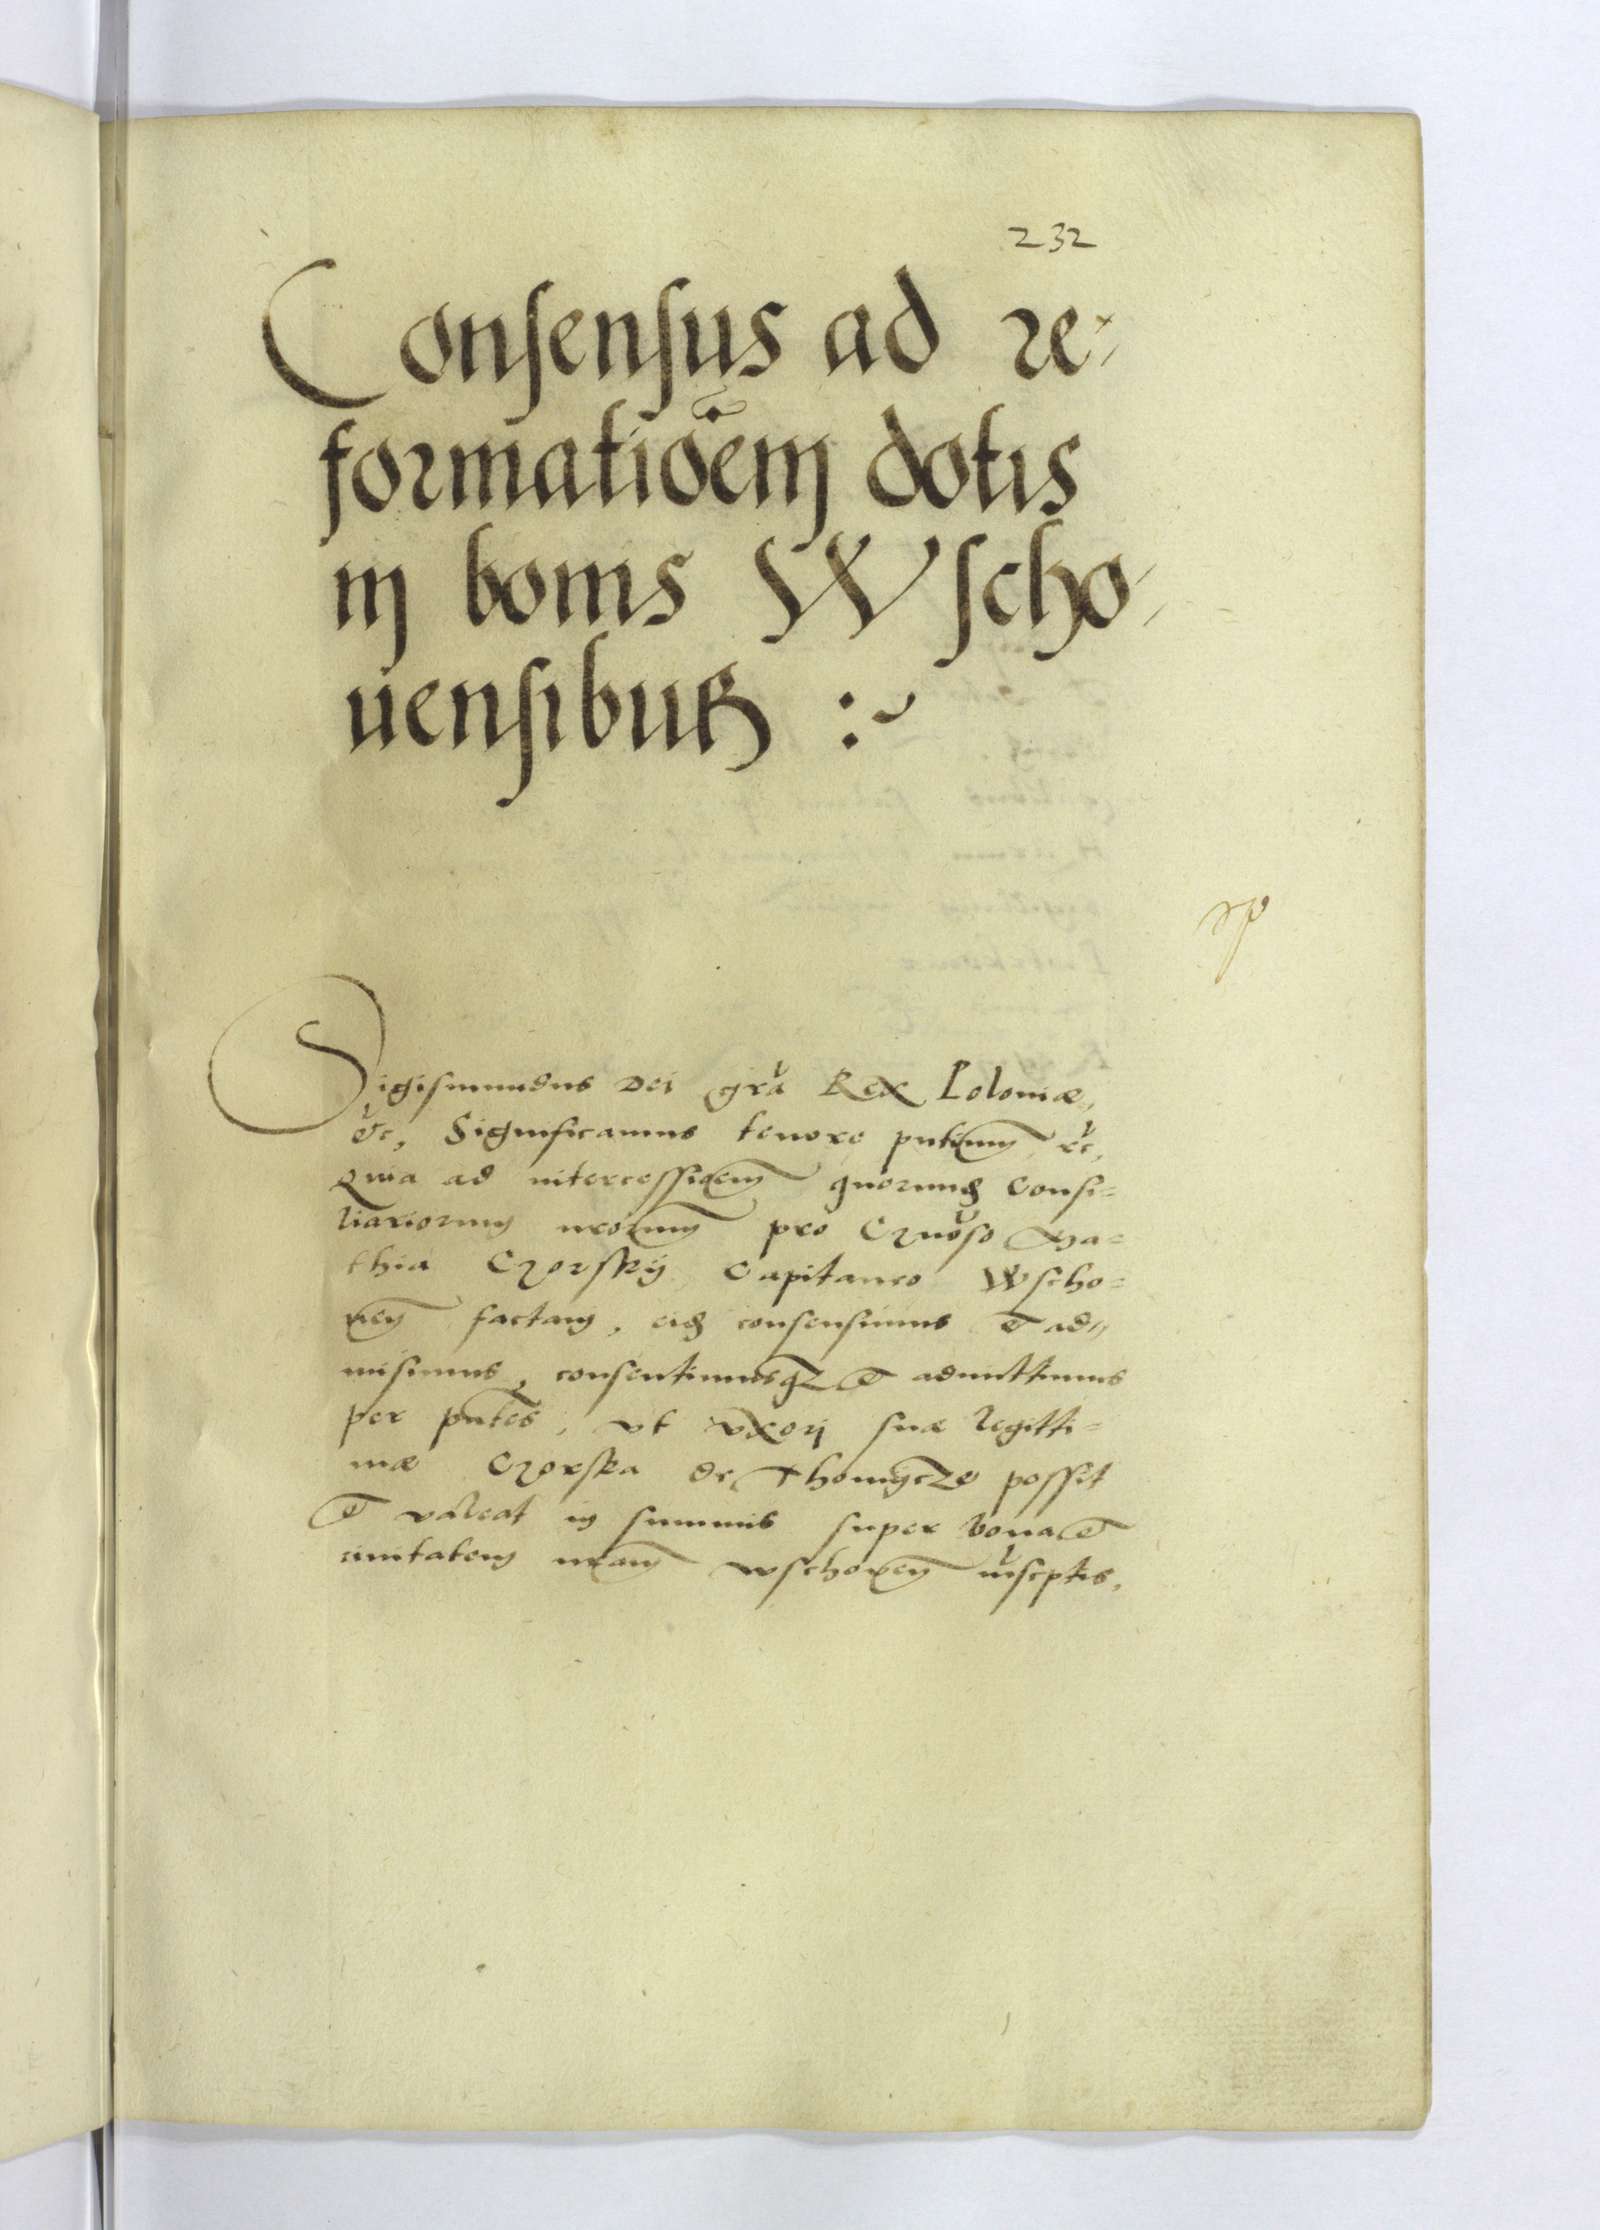 232
Consensus ad re-
formatiõem dotis
in bonis Wscho-
uensibus :~
Sigismundus Dei gra Rex Poloniæ,
&c, Significamus tenore pntium, &c,
Quia ad intercessiõem quorund Consi=
liariorum nrorum pro Gnoso Ma=
thia Czorskij Capitaneo Wscho=
ven factam, eid consensimus et ad=
misimus, consentimusqz et admittimus
per pntes, vt vxori suæ legitti=
mæ Czorska de Thomycze possit
et valeat in summis super bona et
civitatem nram Wschoven inscptis,